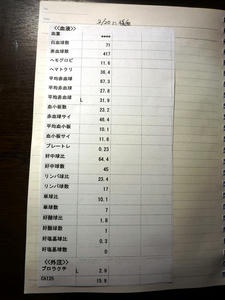 《血液》
血算 ****
白血球数 71
赤血球数 417
ヘモグロビ 11.6
ヘマトクリ 36.4
平均赤血球 87.3
平均赤血球 27.8
平均赤血球 L 31.9
血小板数 23.2
赤血球サイ 46.4
平均血小板 10.1
血小板サイ 11.6
プレートレ 0.23
好中球比 64.4
好中球数 45
リンパ球比 23.4
リンパ球数 17
単球比 10.1
単球数 7
好酸球比 1.8
好酸球数 1
好塩基球比 0.3
好塩基球数 0
《外注》
プロラクチ L 2.9
CA125 15.9